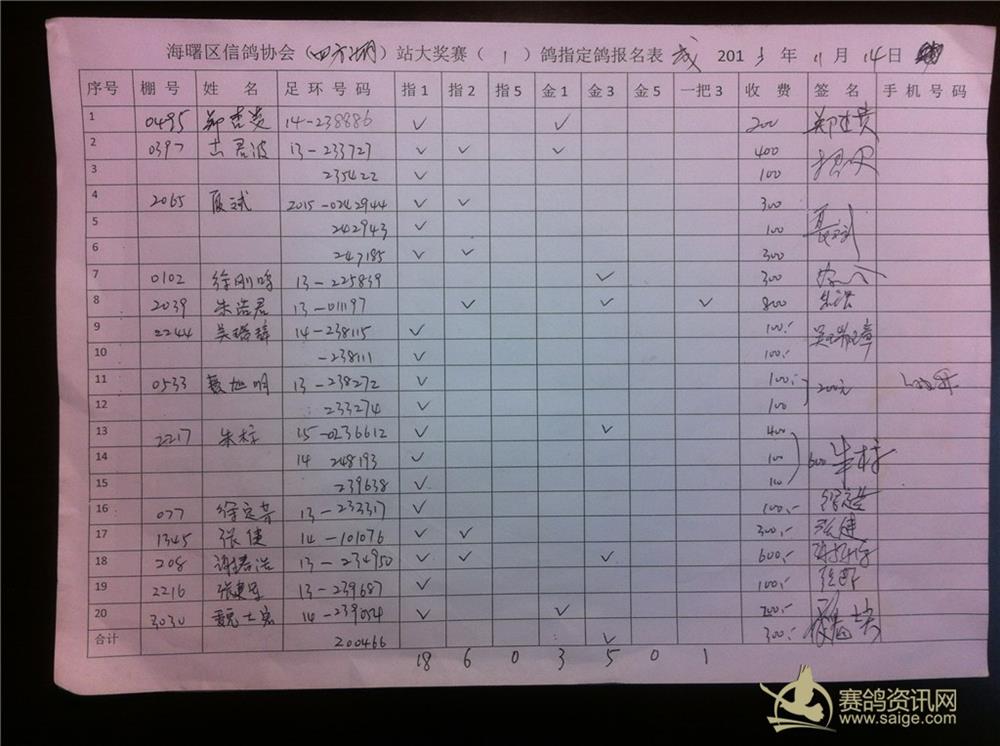 海曙区信鸽协会（四方湖）站大奖赛（ 1 ）鸽指定鸽报名表 201 年 11 月 14 日
序号 棚号 姓 名 足环号码 指1 指2 指5 金1 金3 金5 一把3 收 费 签 名 手机号码
1 0495 14-238886 ✓ ✓ 200
2 0397 13-233727 ✓ ✓ ✓ 400
3 235422 ✓ 100
4 2065 2015-0242944 ✓ ✓ 300
5 242943 ✓ 100
6 247185 ✓ ✓ 300
7 0102 徐刚鸣 13-225839 ✓ 300
8 2039 朱浩君 13-011197 ✓ ✓ ✓ 800
9 2244 吴瑞璋 14-238115 ✓ 100.- 吴瑞璋
10 -238111 ✓ 100.-
11 0533 聂旭明 13-238272 ✓ 100.- 200元
12 233274 ✓ 100
13 2217 朱标 15-0236612 ✓ ✓ 400
14 14 248193 ✓ 100 600 朱标
15 239638 ✓ 100
16 077 徐定芳 13-233317 ✓ 100.-
17 1345 张健 14-101076 ✓ ✓ 300.- 张健
18 208 13-234950 ✓ ✓ ✓ 600.-
19 2216 13-239687 ✓ 100.-
20 3030 14-239054 ✓ ✓ 200.-
合计 200466 ✓ 300.-
18 6 0 3 5 0 1
赛鸽资讯网
www.saige.com